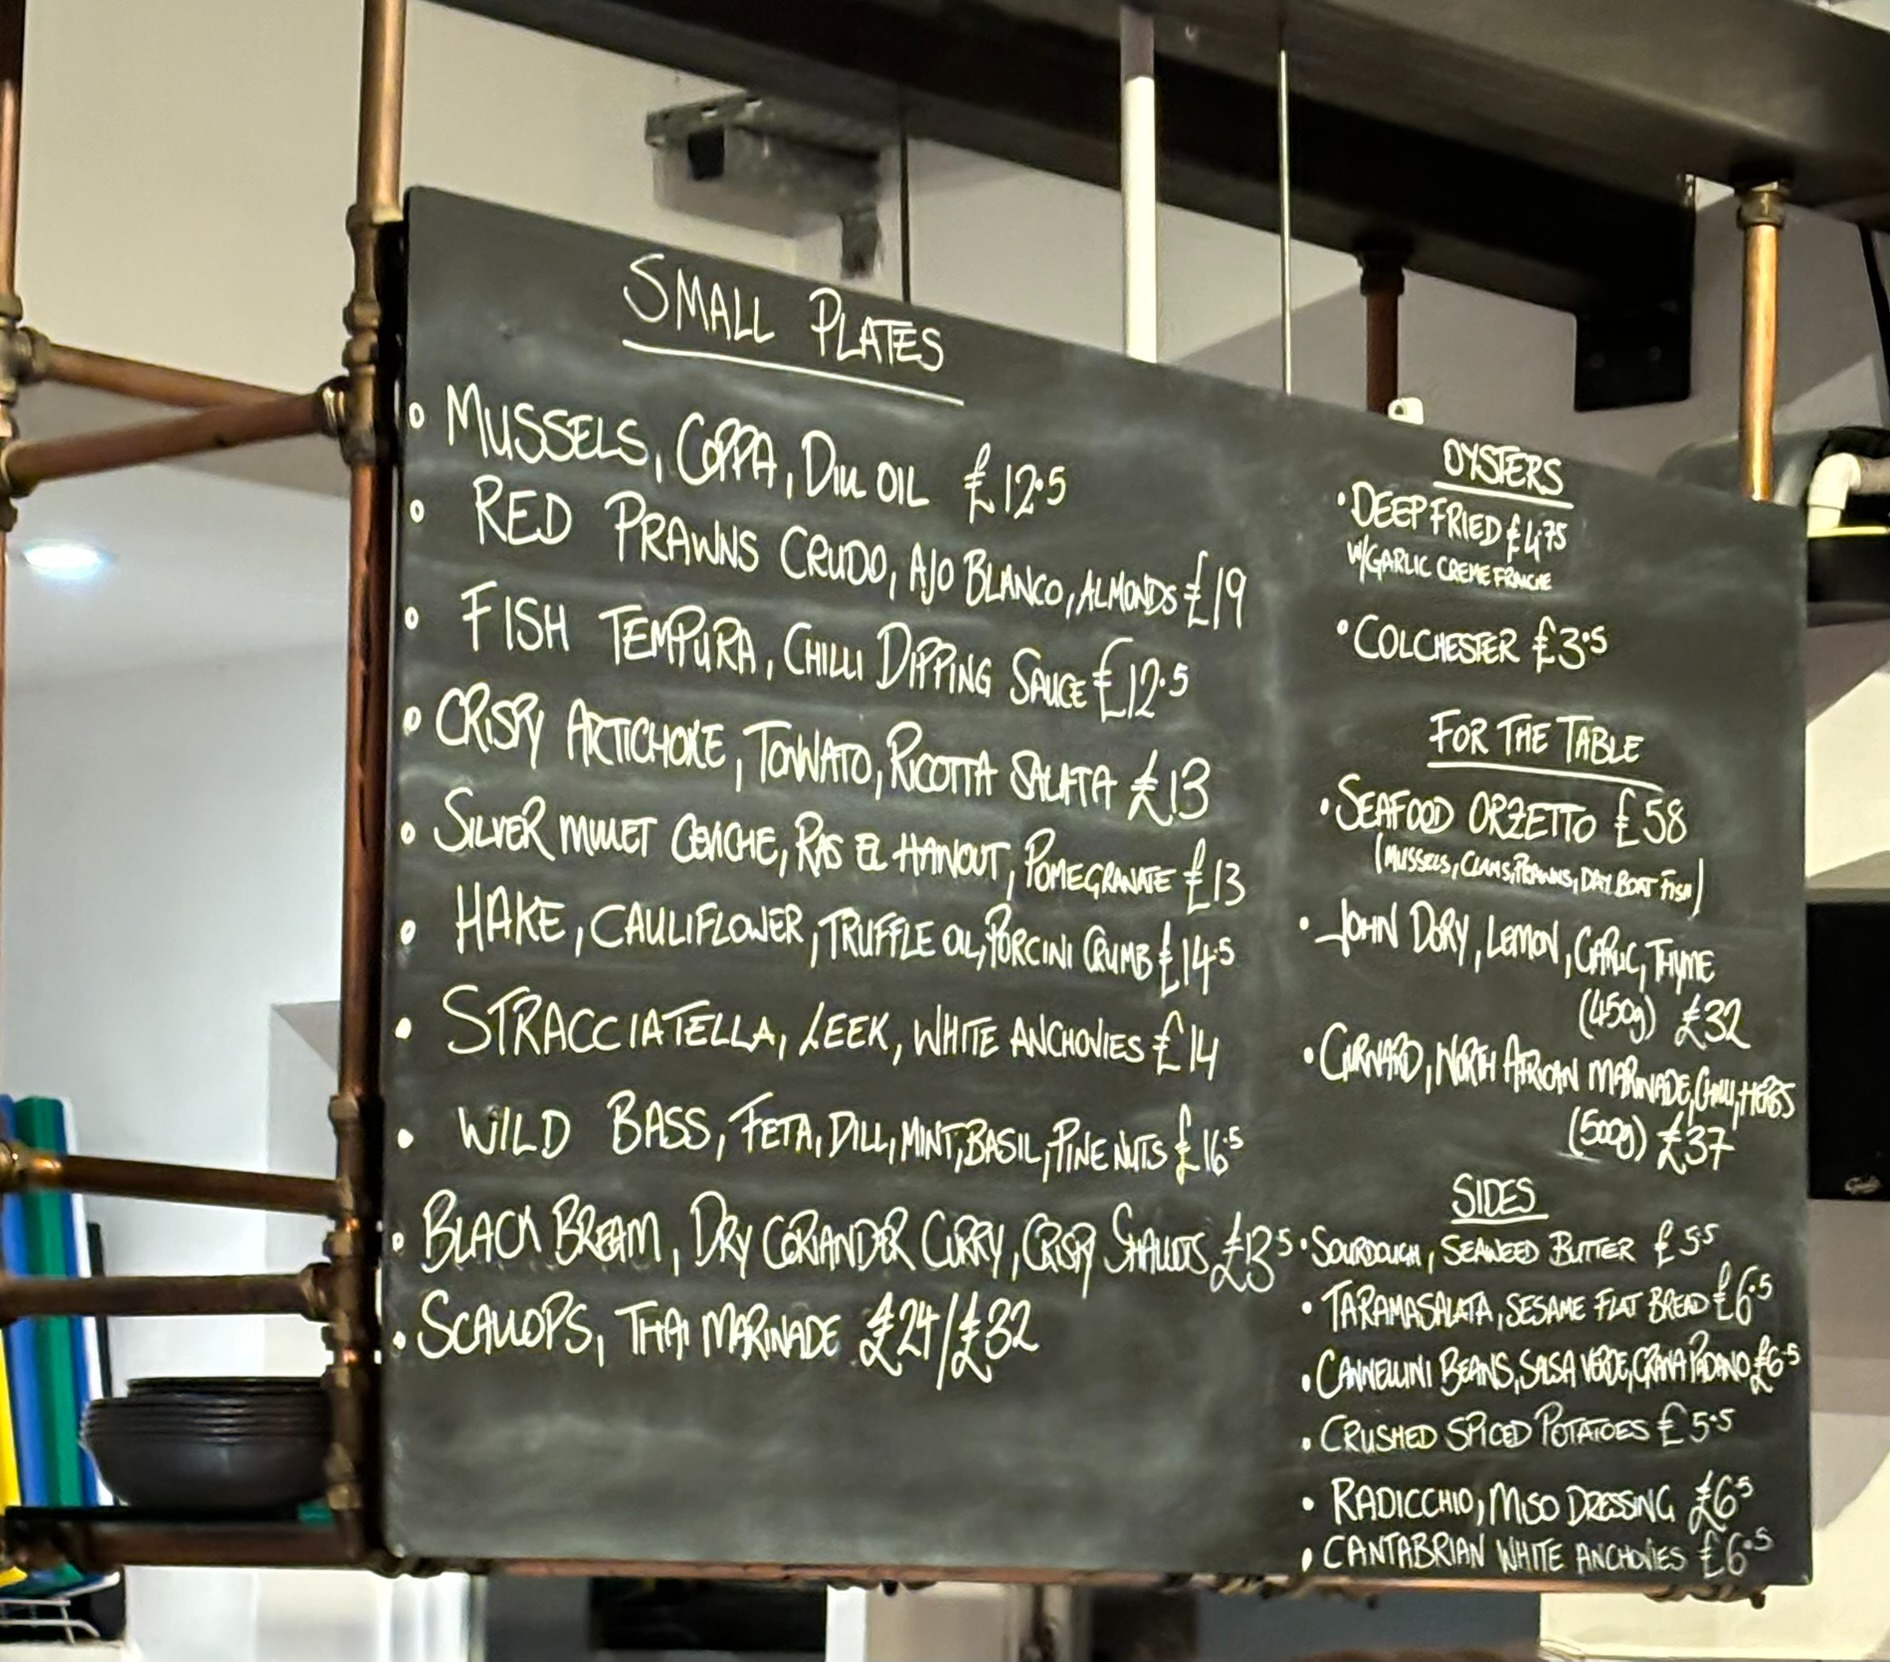 SMALL PLATES
MUSSELS, COPPA, DILL OIL £12.5
RED PRAWNS CRUDO, AJO BLANCO, ALMONDS £19
FISH TEMPURA, CHILLI DIPPING SAUCE £12.5
CRISPY ARTICHOKE, TONNATO, RICOTTA SALATA £13
SILVER MULLET CEVICHE, RAS EL HANOUT, POMEGRANATE £13
HAKE, CAULIFLOWER, TRUFFLE OIL, PORCINI CRUMB £14.5
STRACCIATELLA, LEEK, WHITE ANCHOVIES £14
WILD BASS, FETA, DILL, MINT, BASIL, PINE NUTS £16.5
BLACK BREAM, DRY CORIANDER CURRY, CRISPY SHALLOTS £13.5
SCALLOPS, THAI MARINADE £24/£32
OYSTERS
DEEP FRIED £4.75
W/GARLIC CREME FRAICHE
COLCHESTER £3.5
FOR THE TABLE
SEAFOOD ORZETTO £58
(MUSSELS, CLAMS, PRAWNS, DAY BOAT FISH)
JOHN DORY, LEMON, GARLIC, THYME
(450g) £32
GURNARD, NORTH AFRICAN MARINADE, CHILLI, HERBS
(500g) £37
SIDES
SOURDOUGH, SEAWEED BUTTER £5.5
TARAMASALATA, SESAME FLAT BREAD £6.5
CANNELLINI BEANS, SALSA VERDE, GRANA PADANO £6.5
CRUSHED SPICED POTATOES £5.5
RADICCHIO, MISO DRESSING £6.5
CANTABRIAN WHITE ANCHOVIES £6.5